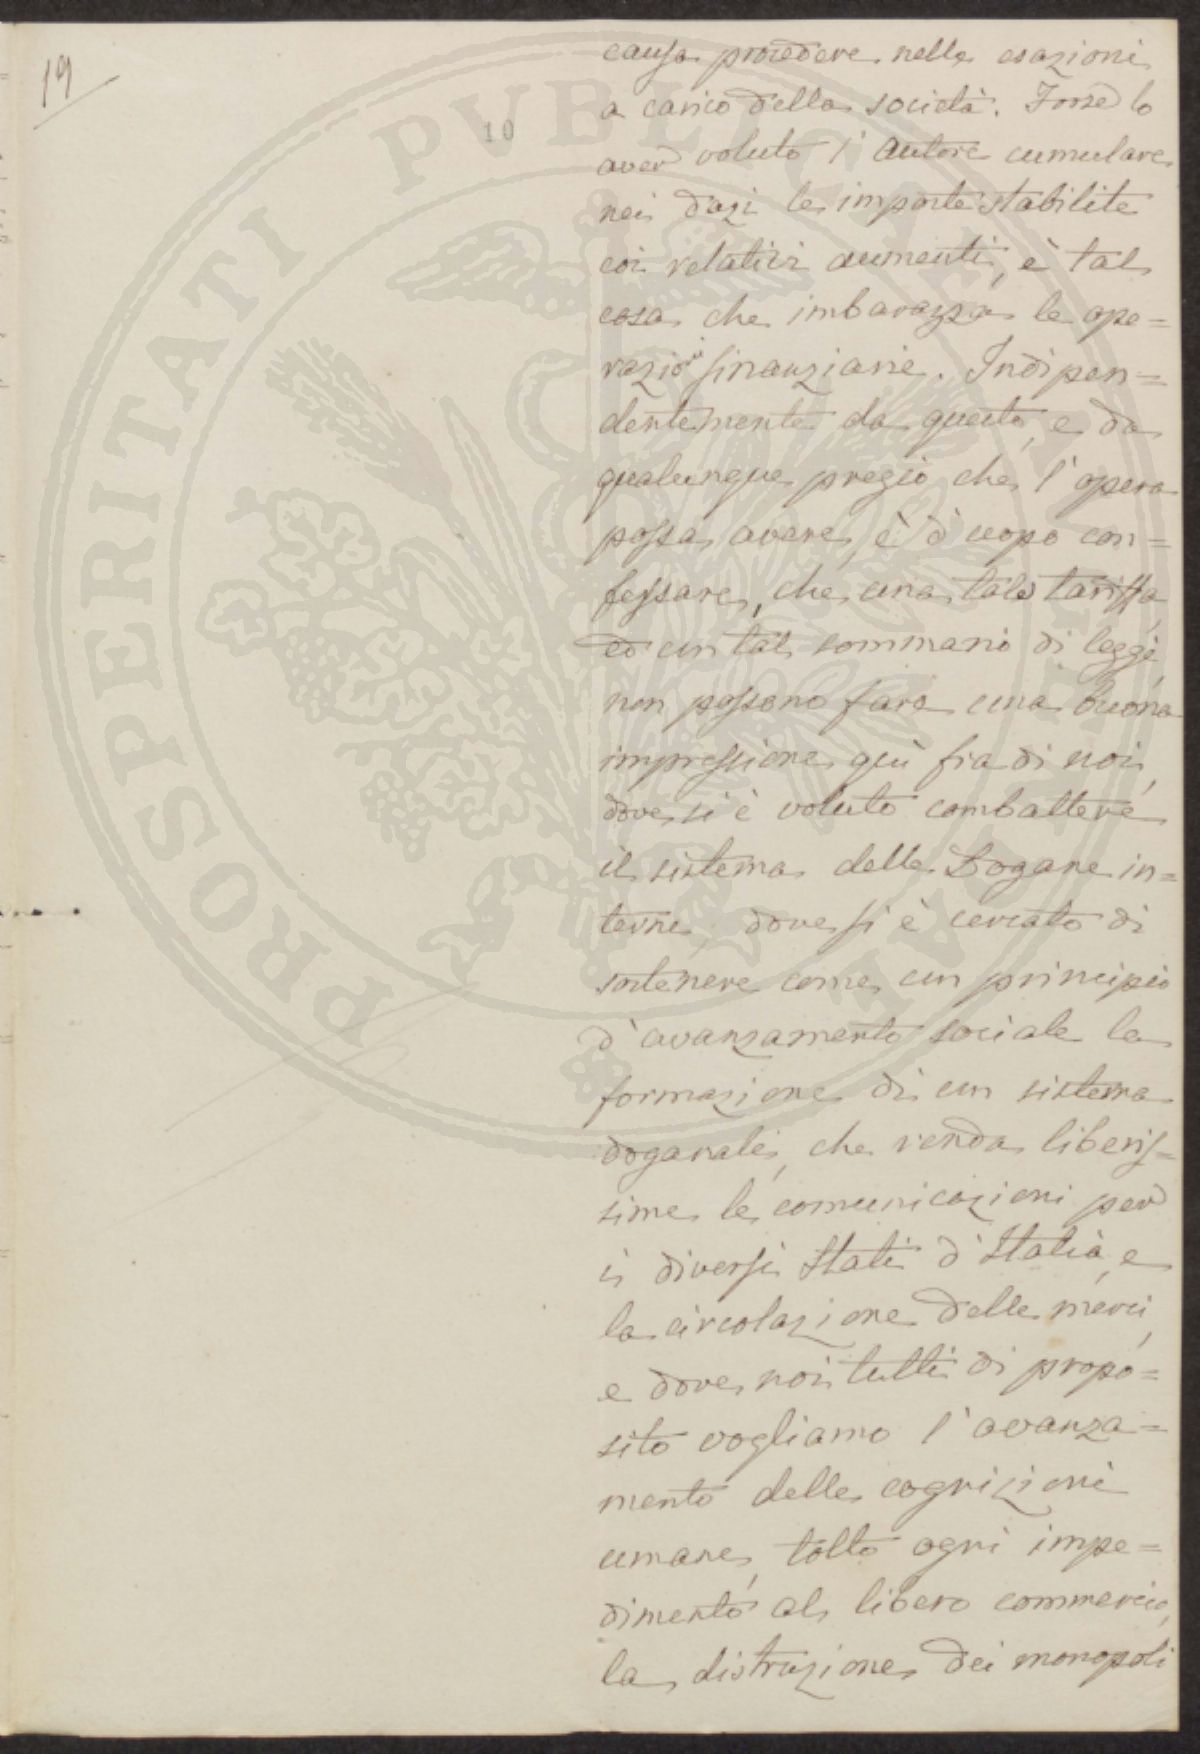 19
10
causa procedere nelle esazioni
a carico della società. Forse lo
aver voluto l'autore cumulare
nei dazi le imposte stabilite
coi relativi aumenti, è tal
cosa che imbarazza le ope=
razioni finanziarie. Indipen=
dentemente da questo, e da
qualunque pregio che l'opera
possa avere, è d'uopo con=
fessare, che una tale tariffa,
ed un tal sommario di leggi,
non possono fare una buona
impressione quì fra di noi,
dove si è voluto combattere
il sistema delle Dogane in=
terne, dove si è cercato di
sostenere come un principio
d'avanzamento sociale la
formazione di un sistema
doganale, che renda liberis=
sime le comunicazioni per
i diversi Stati d'Italia, e
la circolazione delle merci,
e dove noi tutti di propo=
sito vogliamo l'avanza=
mento delle cognizioni
umane, tolto ogni impe=
dimento al libero commercio,
la distruzione dei monopoli
PROSPERITATI PVBLICAE